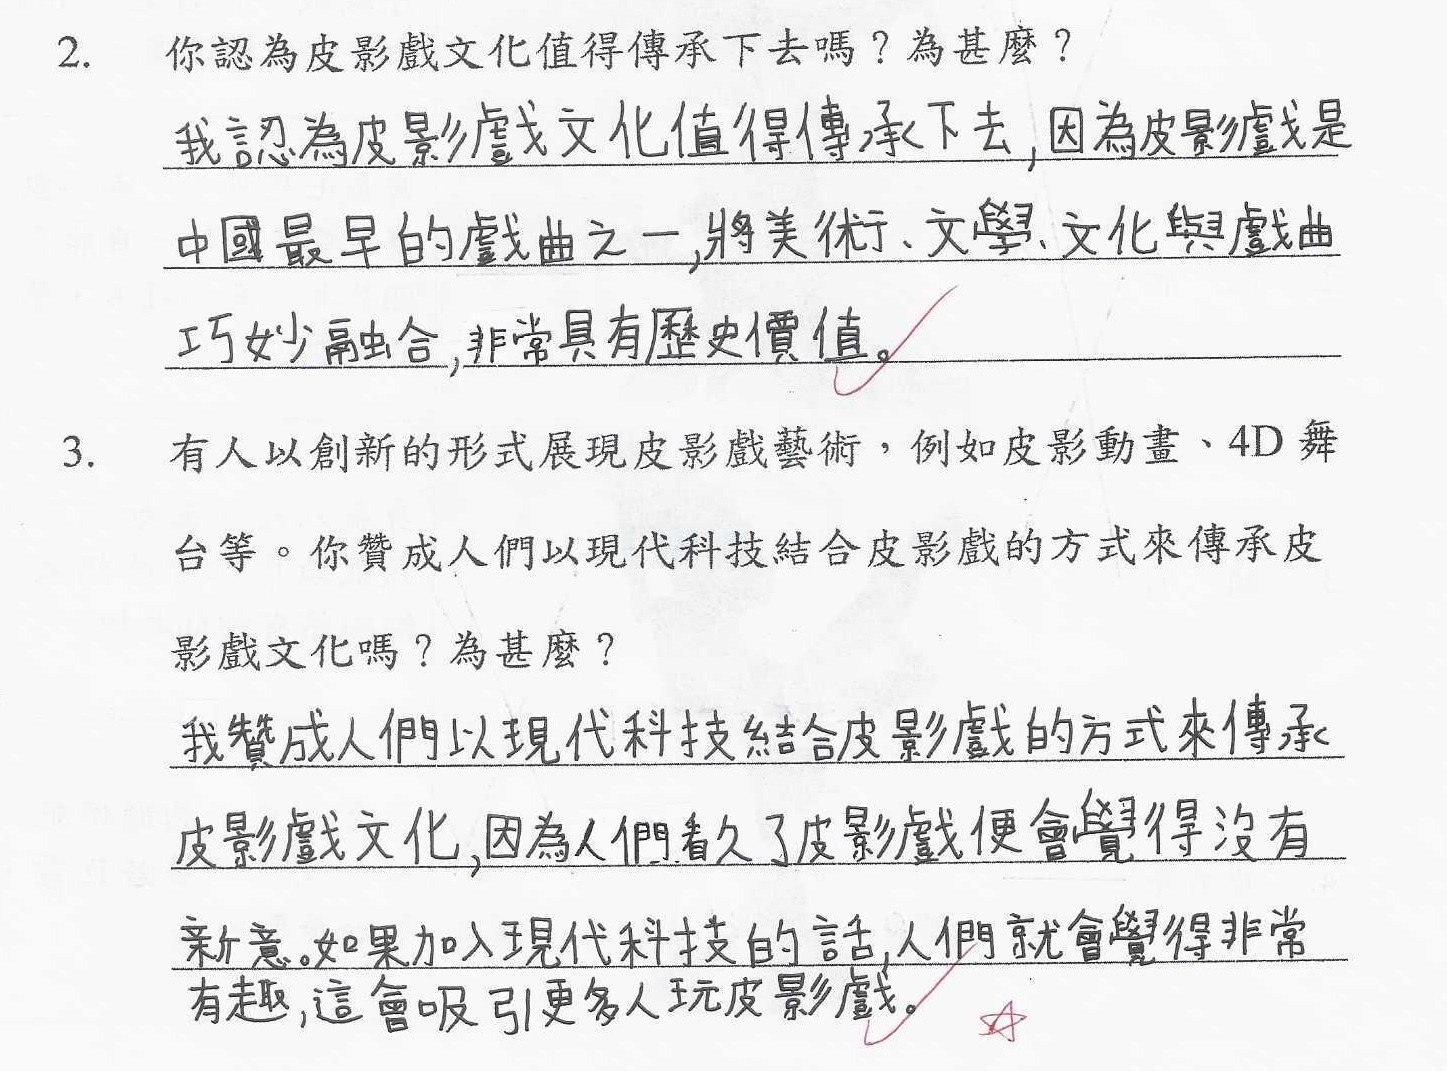 2. 你認為皮影戲文化值得傳承下去嗎？為甚麼？
我認為皮影戲文化值得傳承下去,因為皮影戲是
中國最早的戲曲之一,將美術、文學、文化與戲曲
巧妙融合,非常具有歷史價值。
3. 有人以創新的形式展現皮影戲藝術，例如皮影動畫、4D 舞
台等。你贊成人們以現代科技結合皮影戲的方式來傳承皮
影戲文化嗎？為甚麼？
我贊成人們以現代科技結合皮影戲的方式來傳承
皮影戲文化,因為人們看久了皮影戲便會覺得沒有
新意。如果加入現代科技的話,人們就會覺得非常
有趣,這會吸引更多人玩皮影戲。